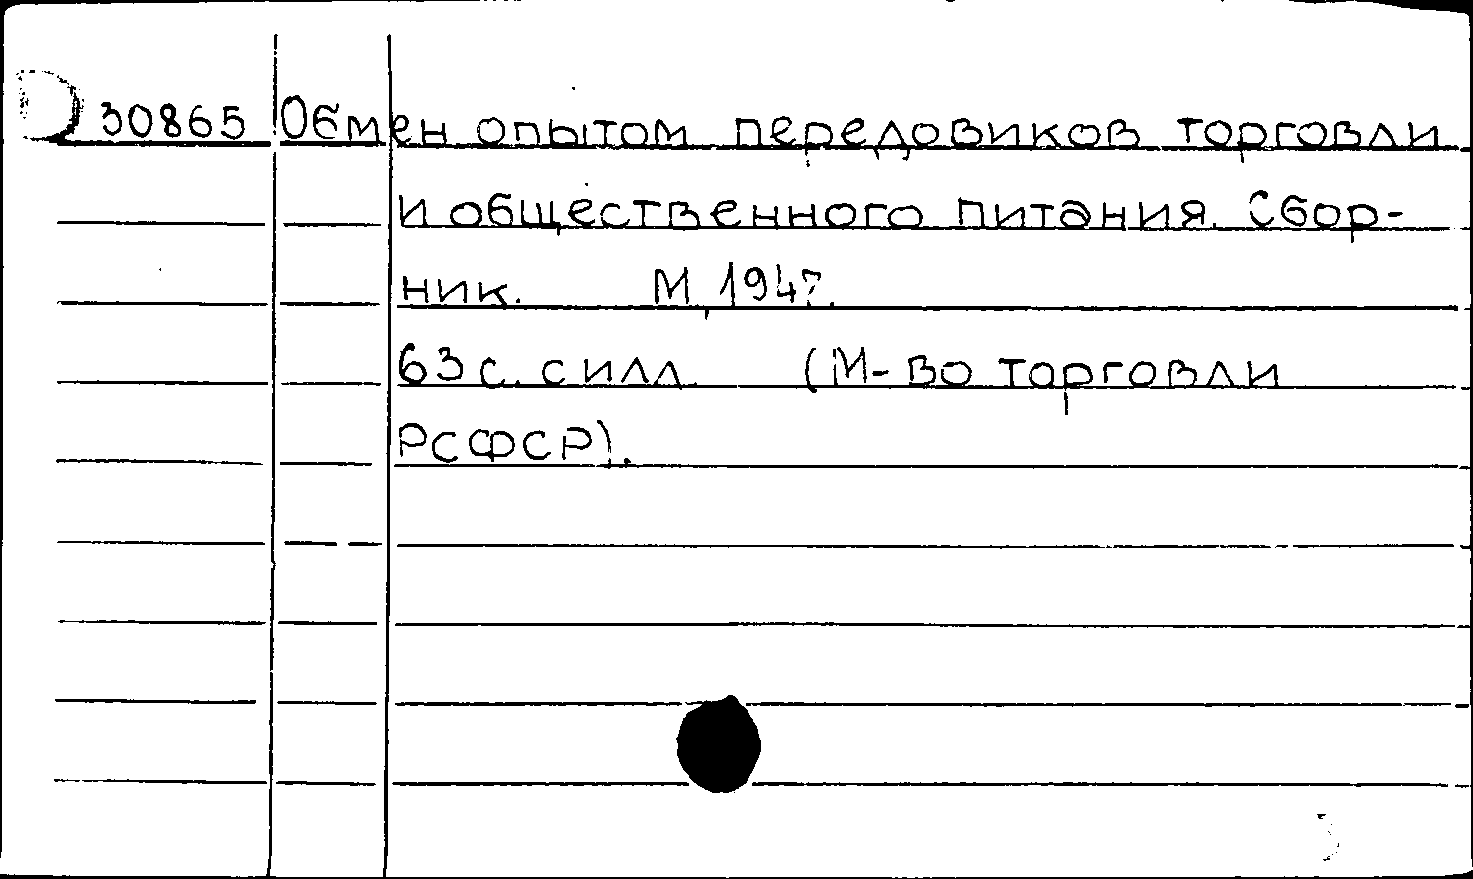 30865 Обмен опытом передовиков торговли
и общественного питания. Сбор-
ник. М, 1947.
63 с. с илл. (М-во торговли
РСФСР).